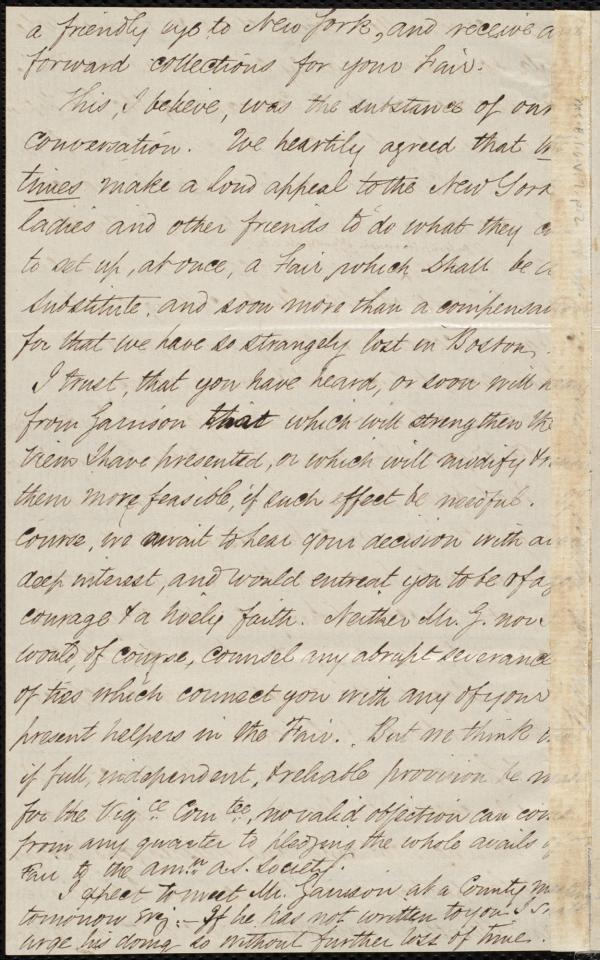 a friendly eye to New York, and receive a
forward collections for your Fair.
This, I believe, was the substance of our
conversation. We heartily agreed that
times make a loud appeal to the New York
ladies and other friends to do what they
to set up, at once, a Fair which shall be a
substitute, and soon more than a compensa
for that we have so strangely lost in Boston.
I trust, that you have heard, or soon will
from Garrison that which will strengthen the
views I have presented, or which will modify &
them more feasible, if such effect be needful.
Course, we await to hear your decision with
deep interest, and would entreat you to be of
courage & a lively faith. Neither Mr. G. nor
would, of course, counsel any abrupt severance
of ties which connect you with any of your
present helpers in the Fair. But we think
if full, independent, & reliable provision be
for the Vig.ce Com.tee, no valid objection can
from any quarter to pledging the whole avails
Fair to the Am.n A.S. Society.
I expect to meet Mr. Garrison at a County
tomorrow Evg. – If he has not written to you I
urge his doing so without further loss of time.